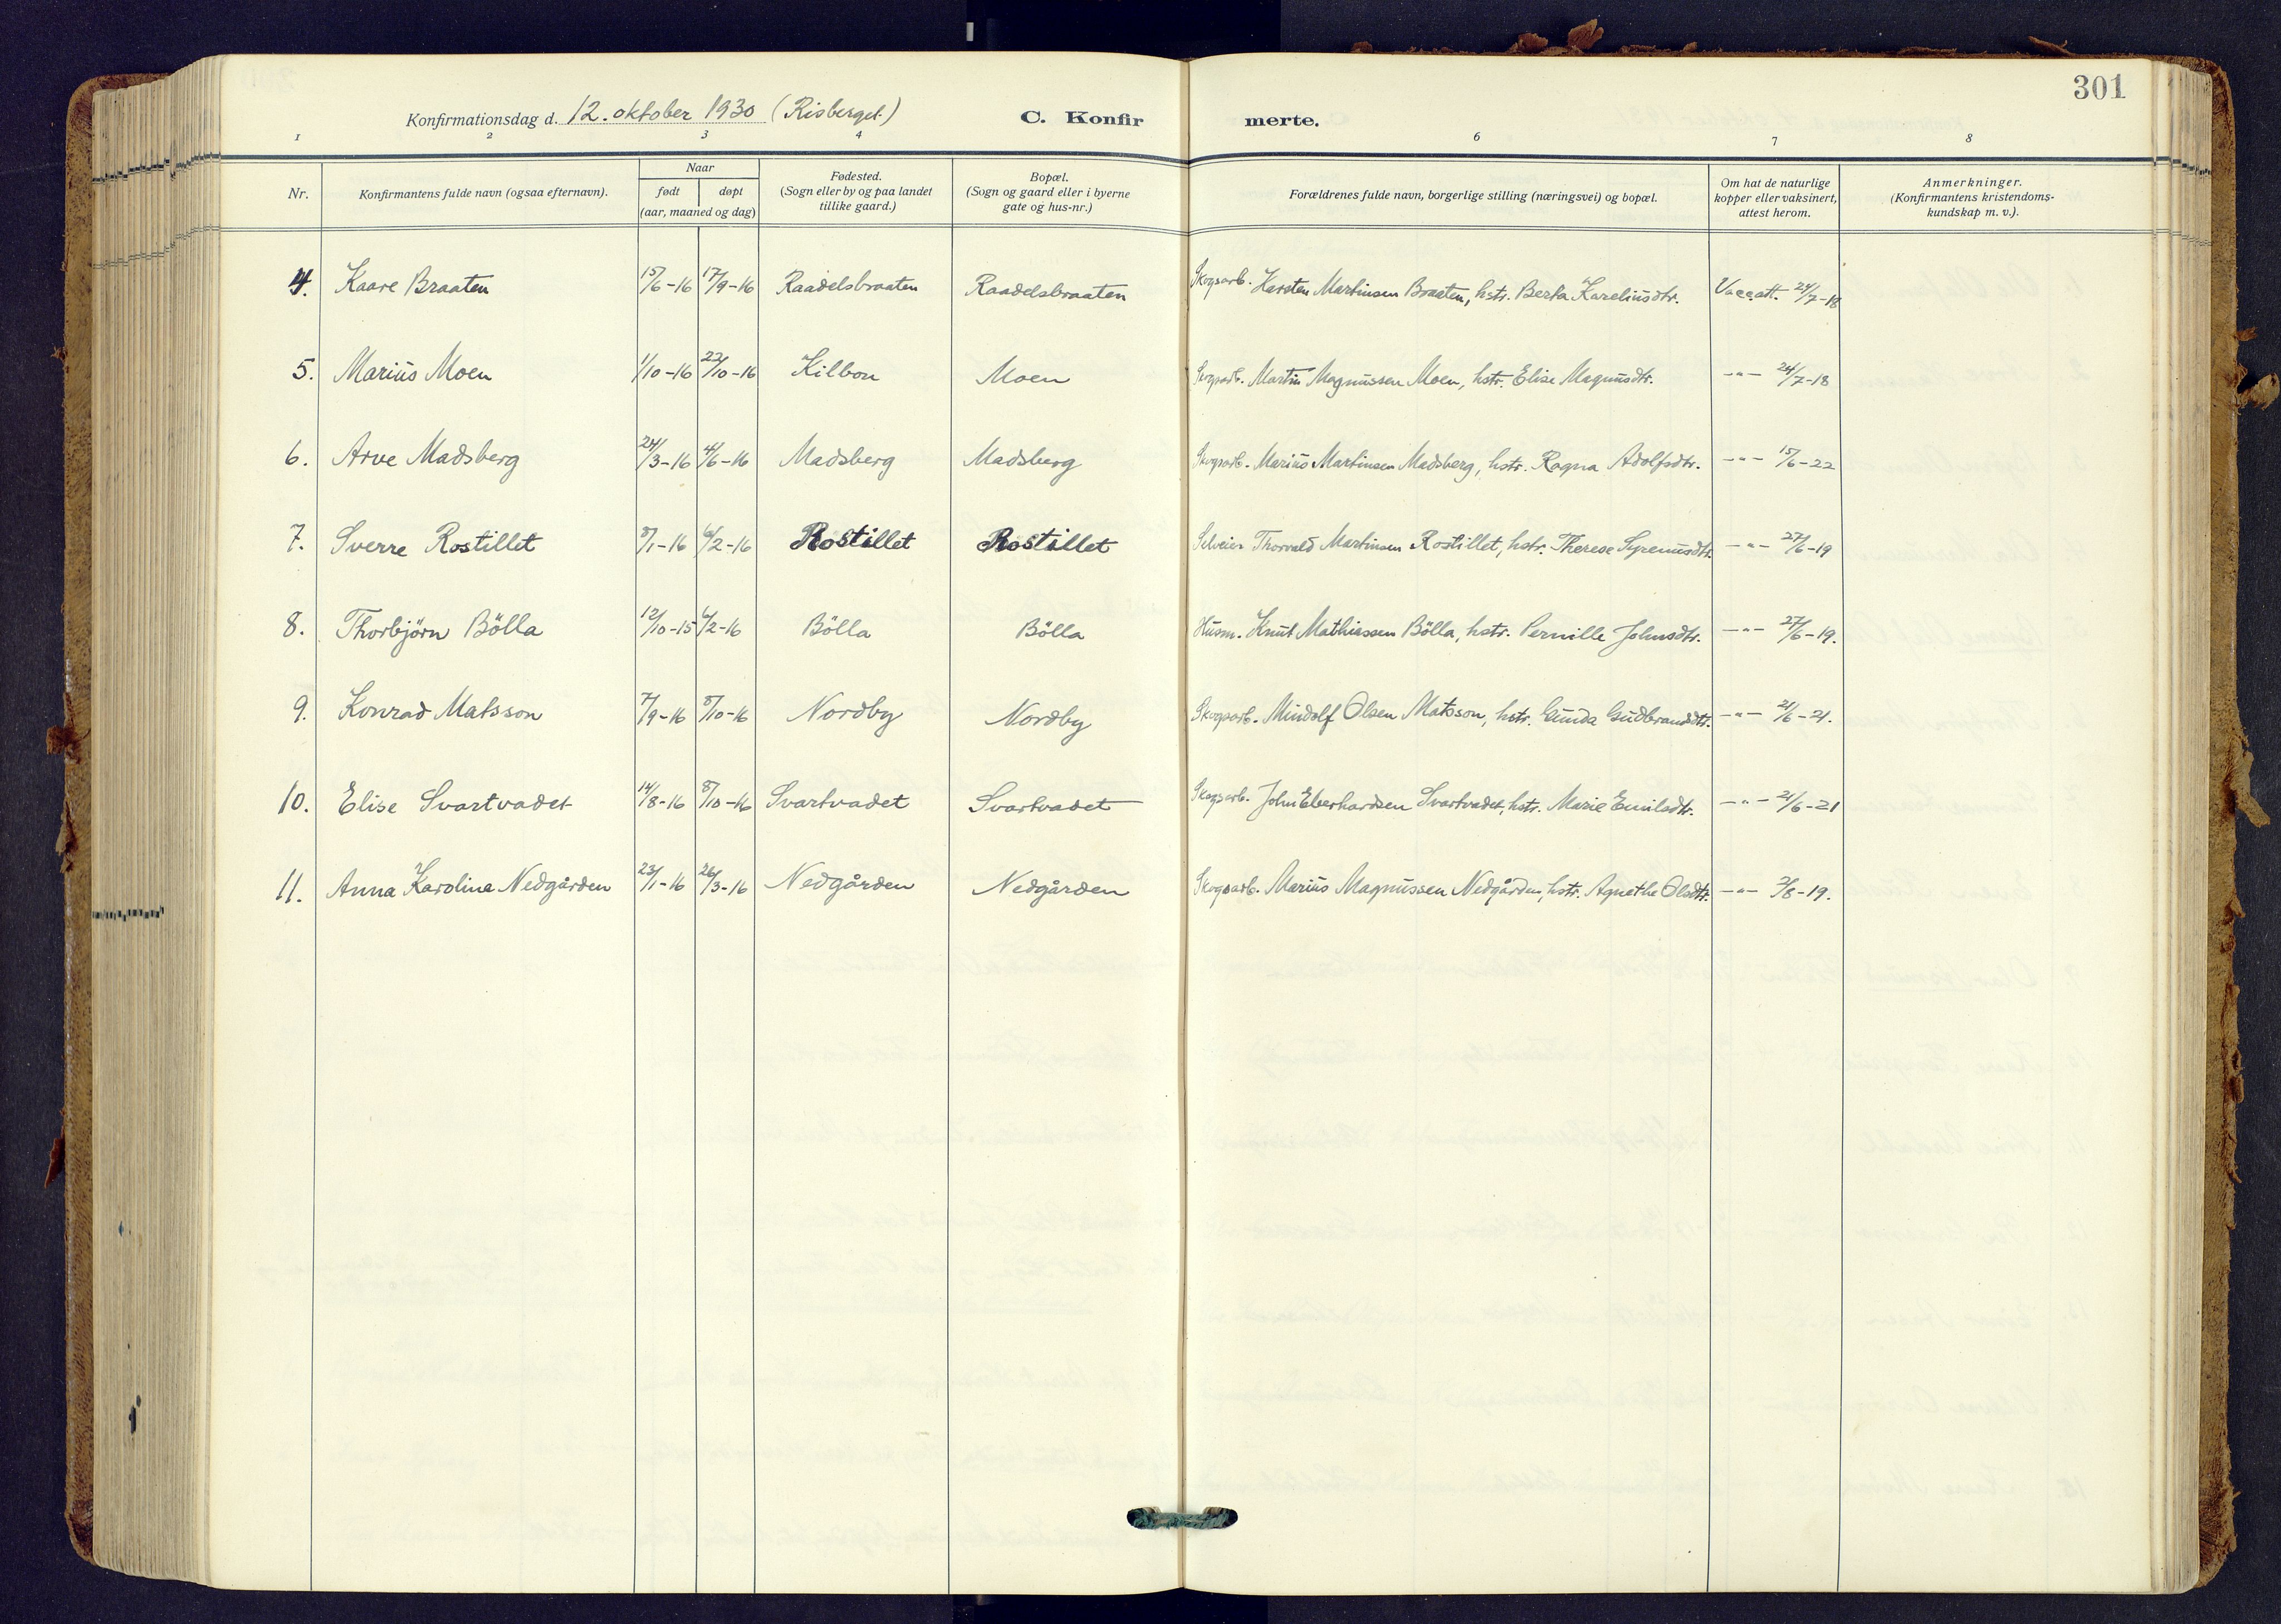 301
Konfirmationsdag d. 12. oktober 1930 (Risberget.) C. Konfir merte.
1 2 3 4 6 7 8
Nr. Konfirmantens fulde navn (ogsaa efternavn). Naar født døpt (aar, maaned og dag) Fødested. (Sogn eller by og paa landet tillike gaard.) Bopæl. (Sogn og gaard eller i byerne gate og hus-nr.) Forældrenes fulde navn, borgerlige stilling (næringsvei) og bopæl. Om hat de naturlige kopper eller vaksinert, attest herom. Anmerkninger. (Konfirmantens kristendoms-kundskap m. v.).
4. Kaare Braaten 15/6-16 17/9-16 Raadelsbraaten Raadelsbraaten Skogsarb. Karsten Martinsen Braaten, hstr. Berta Kareliusdtr. Vacc.att. 24/7-18
5. Marius Moen 1/10-16 22/10-16 Kilbon Moen Skogsarb. Martin Magnussen Moen, hstr. Elise Magnusdtr. -"- 24/7-18
6. Arve Madsberg 24/3-16 4/6-16 Madsberg Madsberg Skogsarb. Marius Martinsen Madsberg, hstr. Ragna Adolfsdtr. -"- 15/6-22
7. Sverre Rostillet 8/1-16 6/2-16 Rostillet Rostillet Selveier Thorvald Martinsen Rostillet, hstr. Therese Syrenusdtr. -"- 27/6-19
8. Thorbjörn Bölla 12/10-15 6/2-16 Bölla Bölla Husm. Knut Mathiassen Bölla, hstr. Pernille Johnsdtr. -"- 27/6-19.
9. Konrad Matsson 7/9-16 8/10-16 Nordby Nordby Skogsarb. Mindolf Olsen Matsson, hstr. Gunda Gudbrandsdtr. -"- 21/6-21.
10. Elise Svartvadet 14/8-16 8/10-16 Svartvadet Svartvadet Skogsarb. John Eberhardsen Svartvadet, hstr. Marie Emilsdtr. -"- 21/6-21
11. Anna Karoline Nedgården 23/1-16 26/3-16 Nedgården Nedgården Skogsarb. Marius Magnussen Nedgården, hstr. Agnethe Olsdtr. -"- 2/8-19.